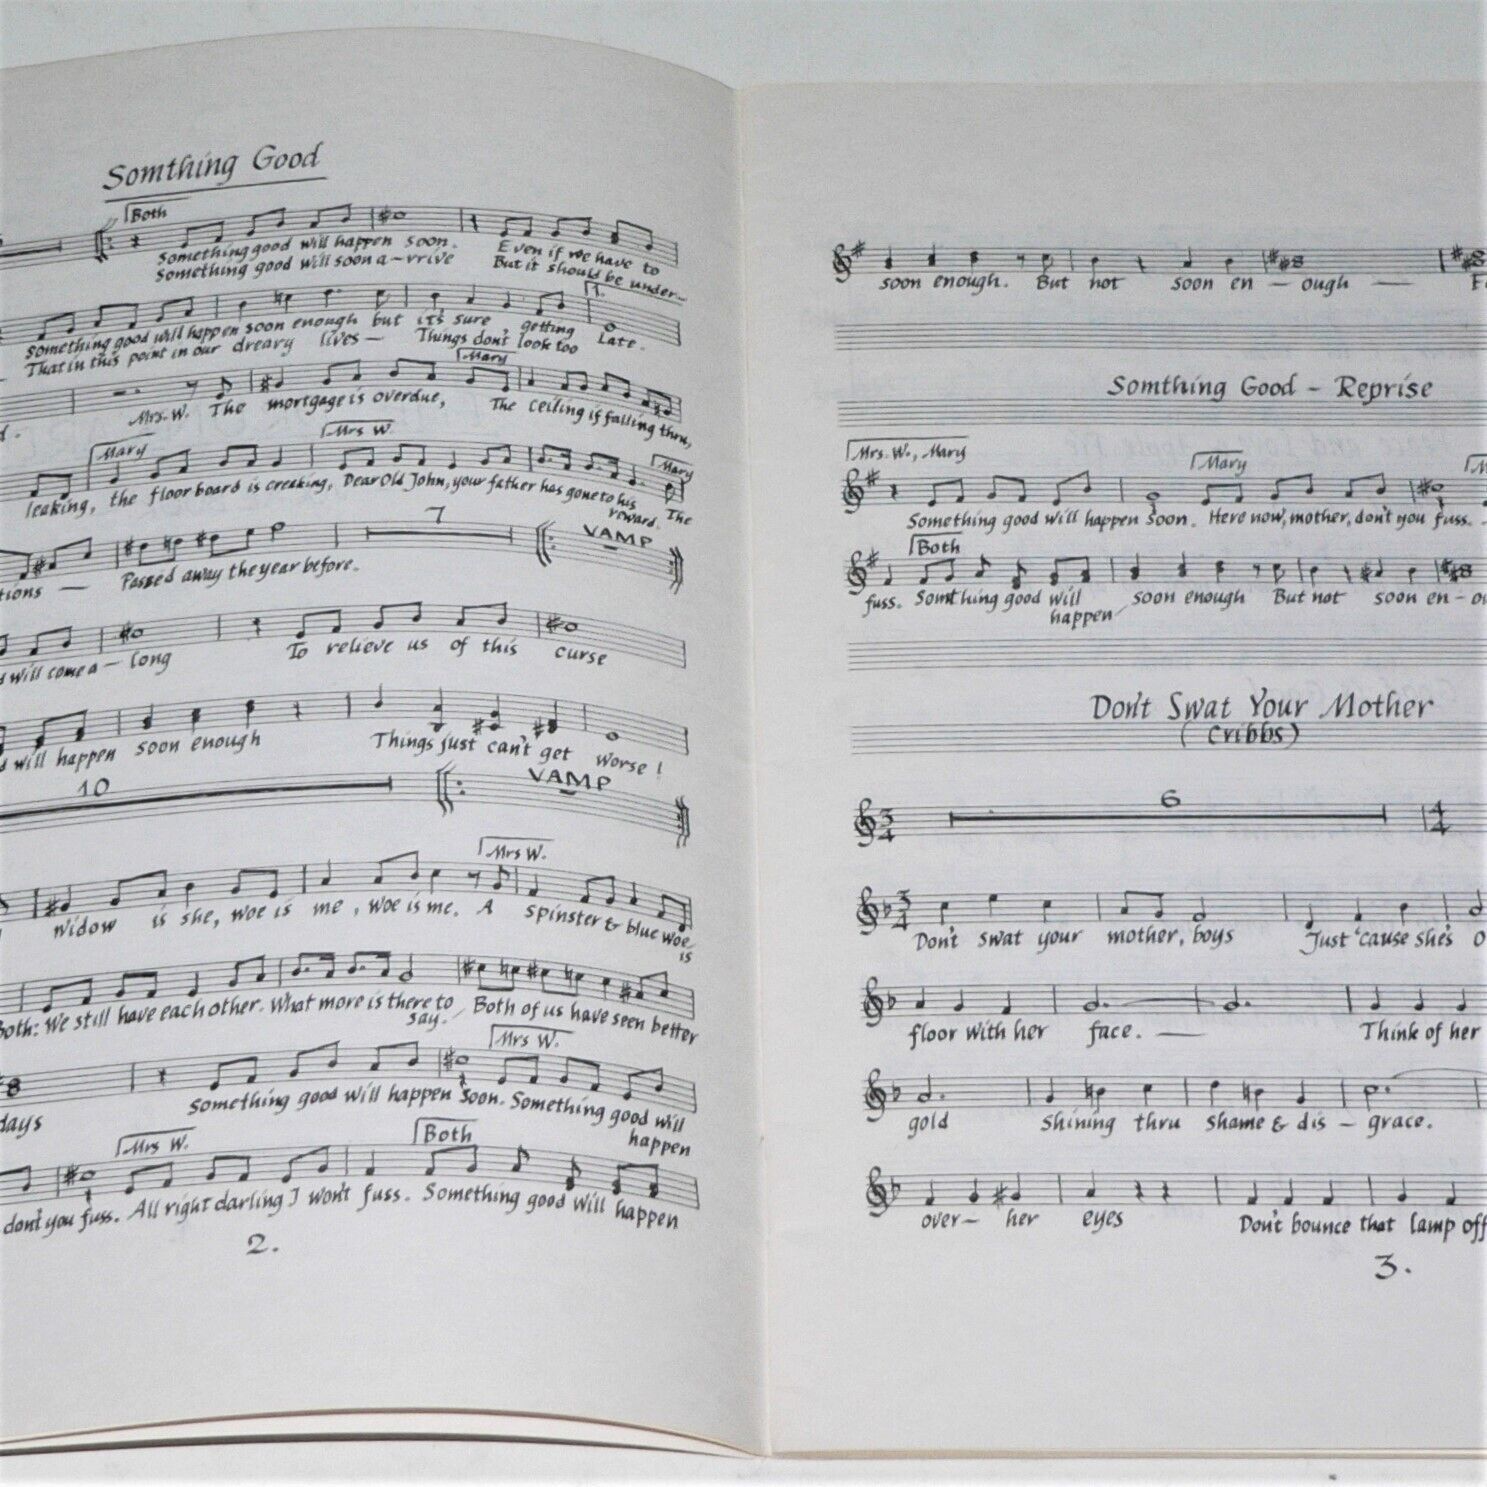 Somthing Good
Both
Something good will happen soon. Even if we have to
Something good will soon a-rrive But it should be under-
1.
Something good will happen soon enough but it's sure getting Late.
That in this point in our dreary lives- Things don't look too
Mary
Mrs. W. The mortgage is overdue, The ceiling if falling thru,
Mary Mrs W. Mary
leaking, the floor board is creaking, Dear Old John, your father has gone to his reward. The
7 VAMP
tions - Passed away the year before.
will come a- long To relieve us of this curse
will happen soon enough Things just can't get worse!
10 VAMP
Mrs W.
Widow is she, woe is me, woe is me. A spinster & blue woe is
Both: We still have each other. What more is there to say. Both of us have seen better
Mrs W.
days Something good will happen soon. Something good will happen
Mrs W. Both
don't you fuss. All right darling I won't fuss. Something good will happen
2.
soon enough. But not soon en - ough -
Somthing Good - Reprise
Mrs. W., Mary Mary
Something good will happen soon. Here now, mother, don't you fuss.
Both
fuss. Something good will happen soon enough But not soon en-ou
Don't Swat Your Mother
(Cribbs)
6
3/4 4/4
3/4
Don't swat your mother, boys Just 'cause she's o
floor with her face. - Think of her
gold shining thru shame & dis - grace.
over- her eyes Don't bounce that lamp off
3.